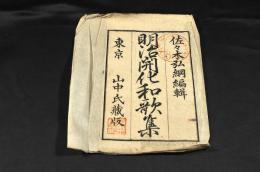 佐々木弘綱編輯
明治開化和歌集
東京　山中氏藏版